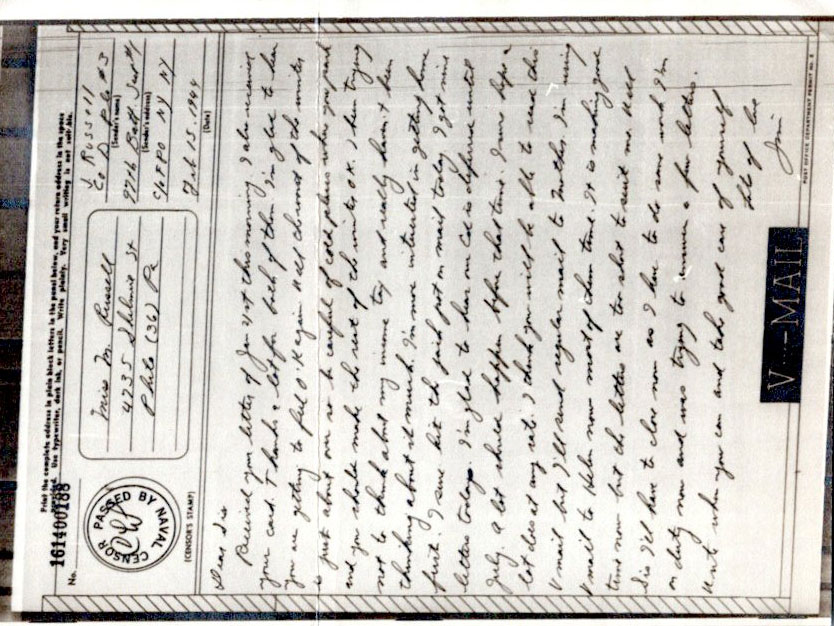 Print the complete address in plain block letters in the panel below, and your return address in the space
provided. Use typewriter, dark ink, or pencil. Write plainly. Very small writing is not suitable.
No.
161400188
PASSED BY NAVAL CENSOR
(CENSOR'S STAMP)
Miss M. Russell
4235 St
Phila (36) Pa
J Russell
Co D Plt #3
(Sender's name)
97th Batt
(Sender's address)
c/o FPO NY NY
Feb 15, 1944
(Date)
Dear Sis
Received your letter of Jan 21st this morning I also received
your card. Thanks a lot for both of them. I'm glad to hear
you are getting to feel O.K again. Well the worst of the winter
is just about over so be careful of cold places where you work
and you should make the rest of the winter O.K. I been trying
not to think about my income tax and really haven't been
thinking about it much. I'm more interested in getting home
first. I sure hit the jack pot on mail today I got nine
letters today. I'm glad to hear our Cal is deferred until
July. A lot should happen before that time I sure hope a
lot does at any rate. I think you will be able to read this
V mail but I'll send regular mail to Mother. I'm using
V mail to Helen now most of the time. It is making good
time now but the letters are too short to suit me. Well
Sis I'll have to close now as I have to do some work I'm
on duty now and was trying to answer a few letters.
Write when you can and take good care of yourself
Lots of love
Jim
V...-MAIL
POST OFFICE DEPARTMENT PERMIT NO.